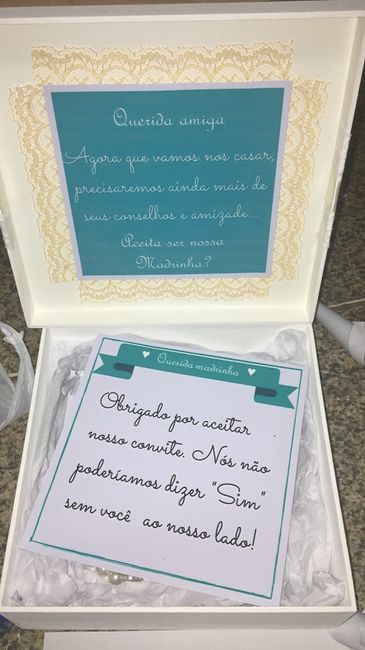 Querida amiga
Agora que vamos nos casar,
precisaremos ainda mais de
seus conselhos e amizade...
Aceita ser nossa
Madrinha?
Querida madrinha
Obrigado por aceitar
nosso convite. Nós não
poderíamos dizer "Sim"
sem você ao nosso lado!